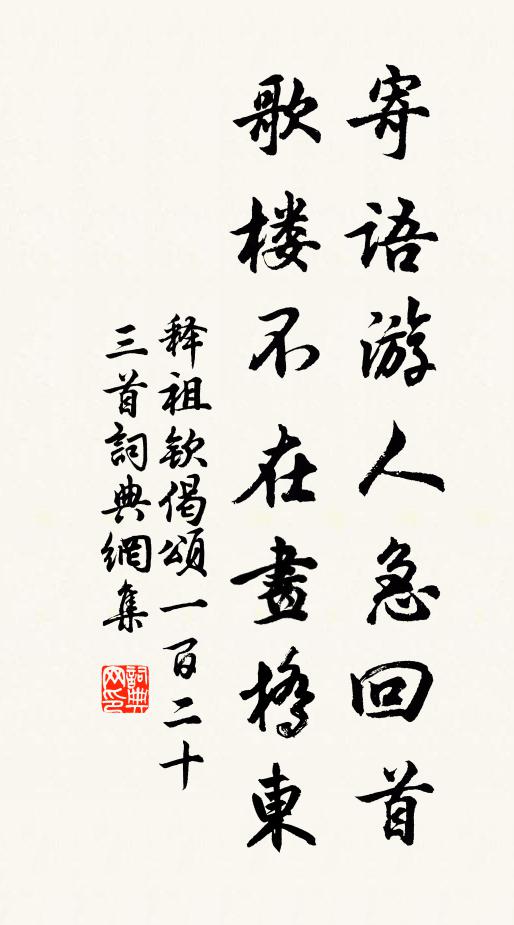 寄語游人急回首
歌楼不在畫橋東
释祖钦偈頌一百二十
三首詞典網集
詞典
网印